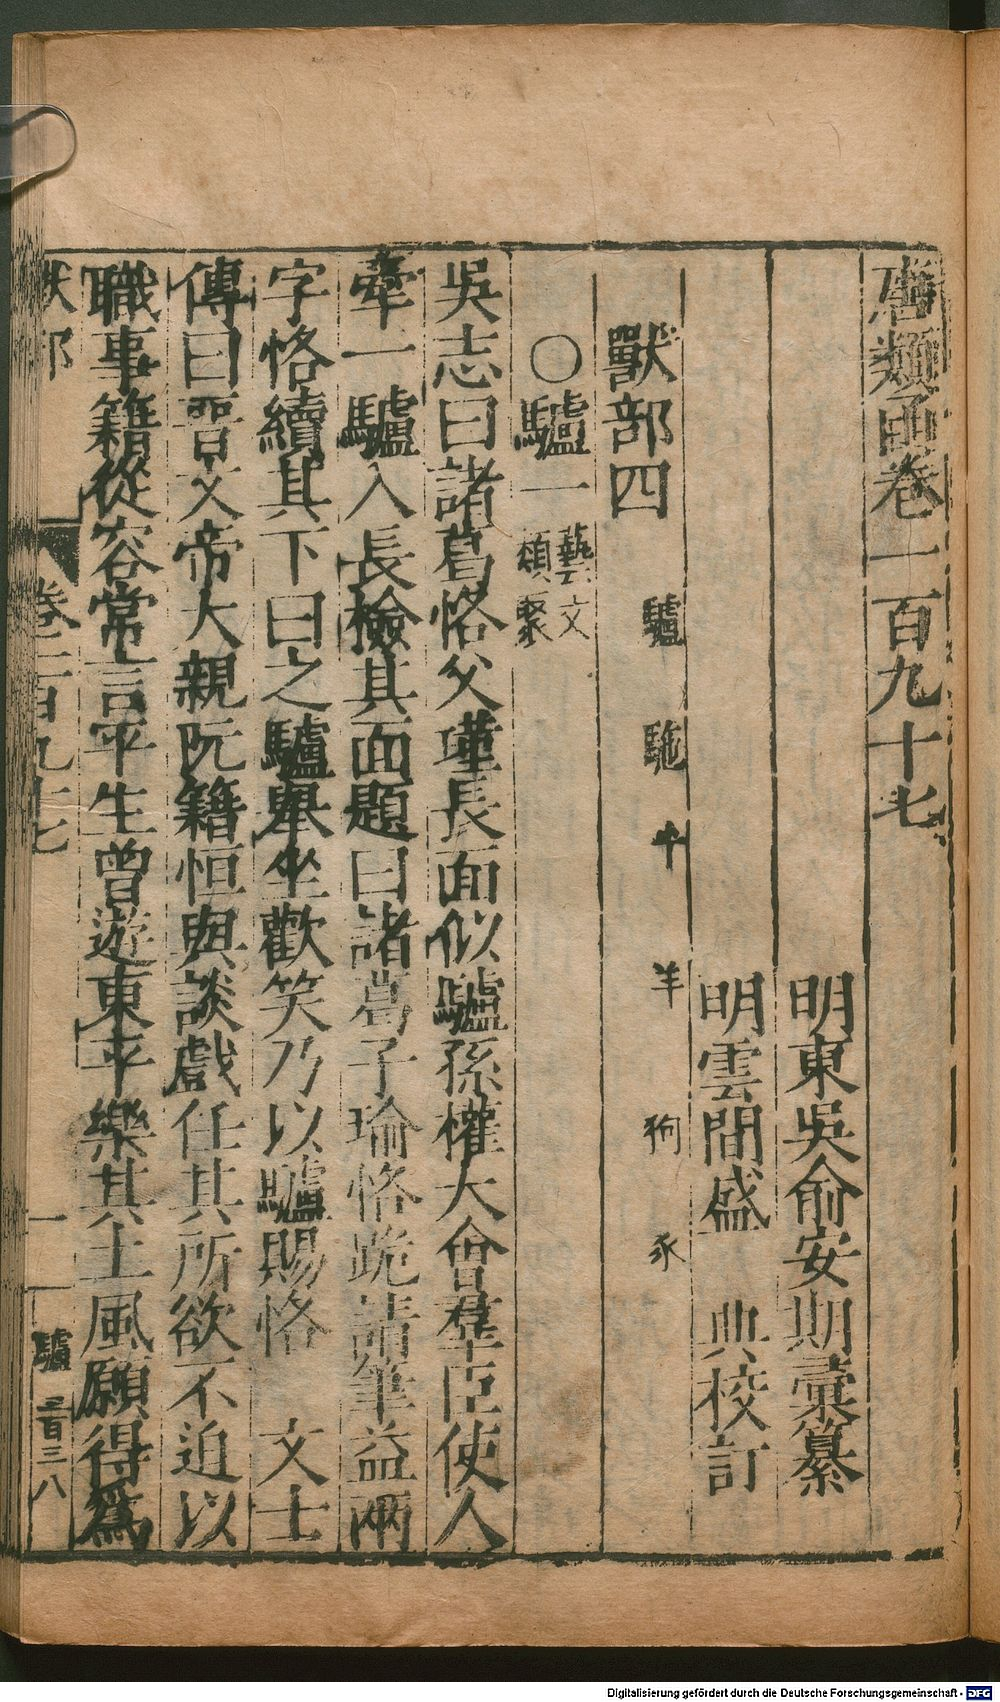 唐類函卷一百九十七
明東吳俞安期彙纂
明雲間盛　典校訂
獸部四　驢　駞　牛　羊　狗　豕
○驢一　藝文類聚
吳志曰諸葛恪父瑾長面似驢孫權大會羣臣使人
牽一驢入長檢其面題曰諸葛子瑜恪跪請筆益兩
字恪續其下曰之驢舉坐歡笑乃以驢賜恪　文士
傳曰晋文帝大親阮籍恒與談戲任其所欲不迫以
職事籍從容常言平生曾遊東平樂其土風願得爲
獸部　卷一百九十七　一　驢　三百三八
Digitalisierung gefördert durch die Deutsche Forschungsgemeinschaft - DFG